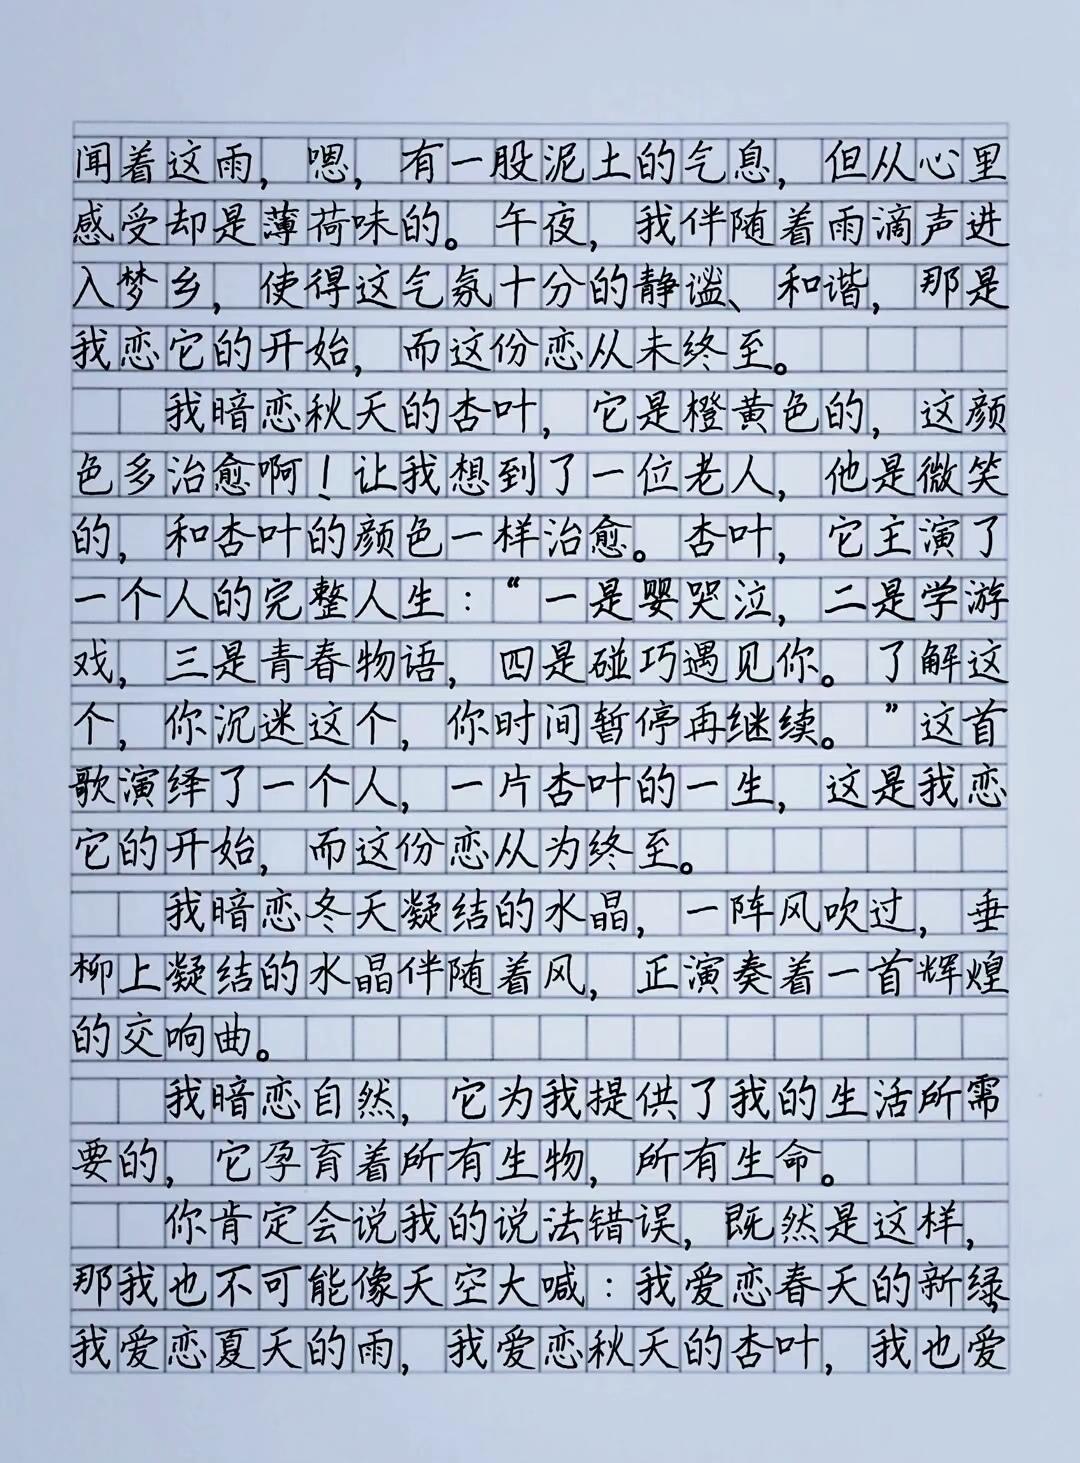 闻着这雨，嗯，有一股泥土的气息，但从心里
感受却是薄荷味的。午夜，我伴随着雨滴声进
入梦乡，使得这气氛十分的静谧、和谐，那是
我恋它的开始，而这份恋从未终至。
我暗恋秋天的杏叶，它是橙黄色的，这颜
色多治愈啊！让我想到了一位老人，他是微笑
的，和杏叶的颜色一样治愈。杏叶，它主演了
一个人的完整人生：“一是婴哭泣，二是学游
戏，三是青春物语，四是碰巧遇见你。了解这
个，你沉迷这个，你时间暂停再继续。”这首
歌演绎了一个人，一片杏叶的一生，这是我恋
它的开始，而这份恋从为终至。
我暗恋冬天凝结的水晶，一阵风吹过，垂
柳上凝结的水晶伴随着风，正演奏着一首辉煌
的交响曲。
我暗恋自然，它为我提供了我的生活所需
要的，它孕育着所有生物，所有生命。
你肯定会说我的说法错误，既然是这样，
那我也不可能像天空大喊：我爱恋春天的新绿，
我爱恋夏天的雨，我爱恋秋天的杏叶，我也爱